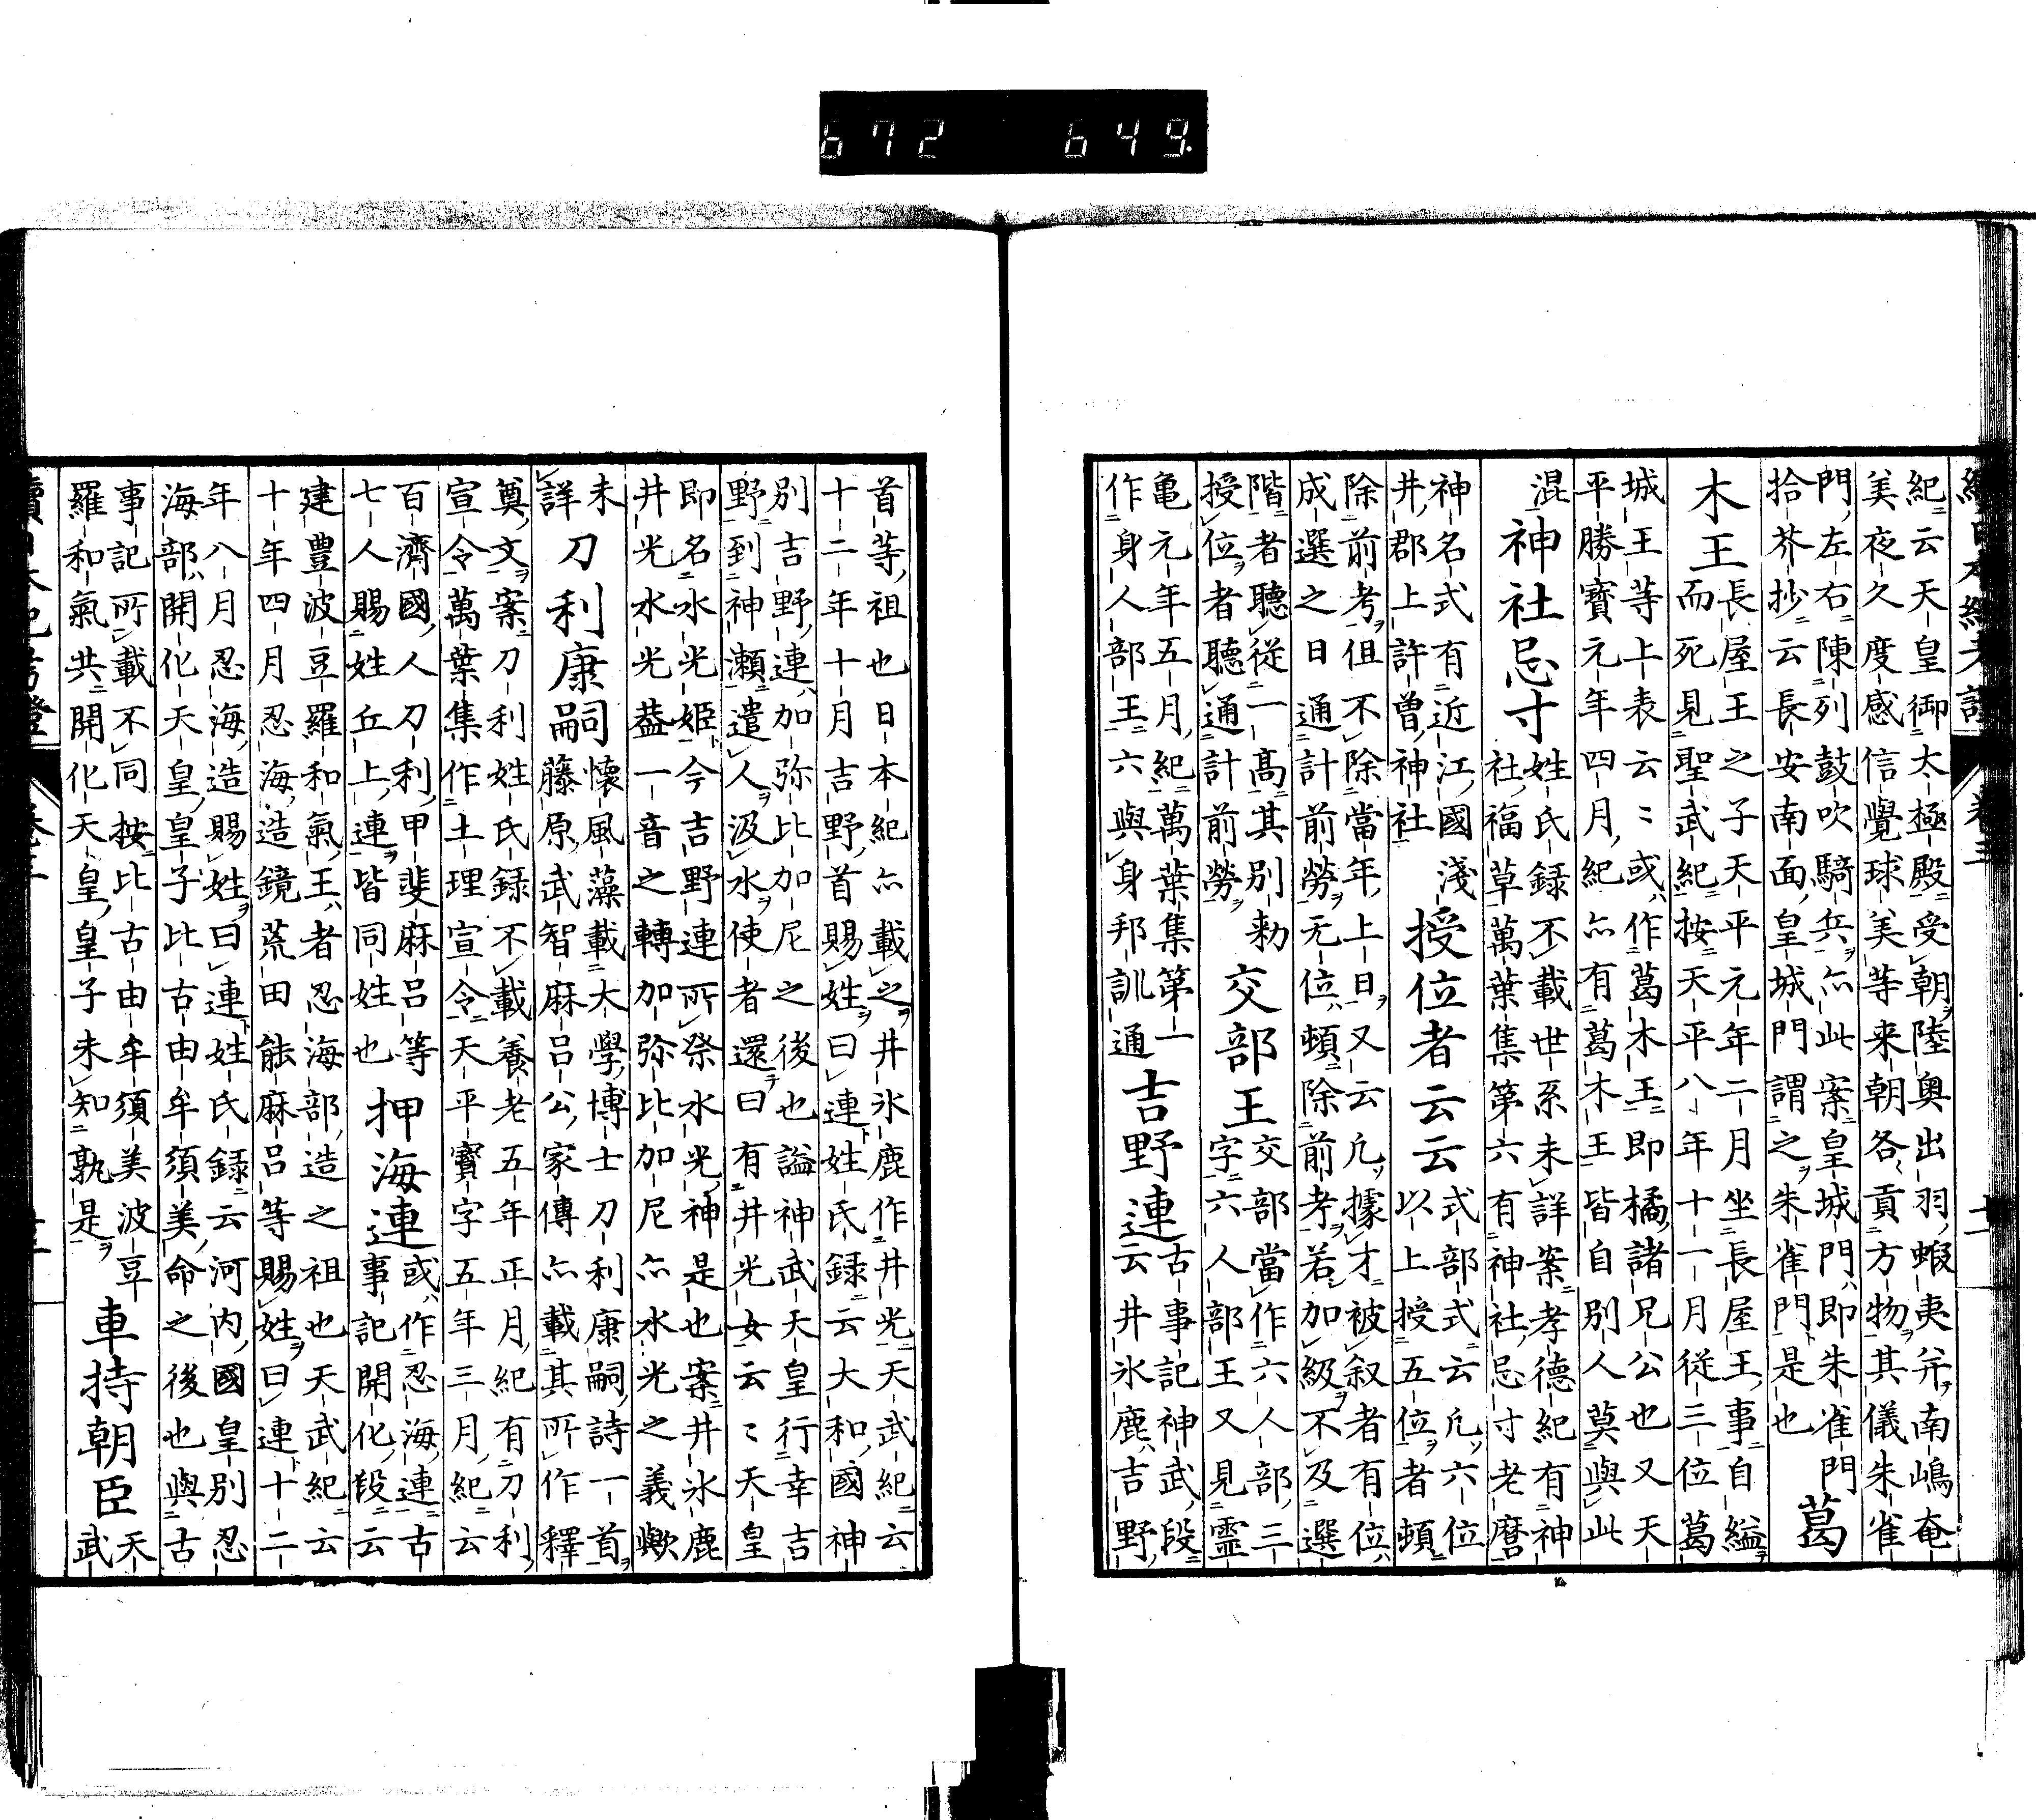 672 649.
紀云天皇御太極殿受朝陸奥出羽蝦夷并南嶋奄
美夜久度感信覺球美等来朝各貢方物其儀朱雀
門左右陳列鼓吹騎兵亦此案皇城門即朱雀門
拾芥抄云長安南面皇城門謂之朱雀門是也
葛
木王
長屋王之子天平元年二月坐長屋王事自縊
而死見聖武紀按天平八年十一月従三位葛
城王等上表云〻或作葛木王即橘諸兄公也又天
平勝寳元年四月紀亦有葛木王皆自別人莫與此
混
神社忌寸
姓氏録不載世系未詳案孝德紀有神
社福草萬葉集第六有神社忌寸老麿
神名式有近江國淺
井郡上許曽神社
授位者云云
式部式云凡六位
以上授五位者頓
除前考但不除當年上日又云凡據才被叙者有位
成選之日通計前勞无位頓除前考若加級不及選
階者聽従一髙其別勅
授位者聽通計前勞
交部王
交部當作六人部三
字六人部王又見靈
亀元年五月紀萬葉集第一
作身人部王六與身邦訓通
吉野連
古事記神武段
云井氷鹿吉野
首等祖也日本紀亦載之井氷鹿作井光天武紀云
十二年十月吉野首賜姓曰連姓氏録云大和國神
別吉野連加弥比加尼之後也謚神武天皇行幸吉
野到神瀬遣人汲水使者還曰有井光女云〻天皇
即名水光姫今吉野連所祭水光神是也案井氷鹿
井光水光葢一音之轉加弥比加尼亦水光之義歟
未
詳
刀利康嗣
懐風藻載大學博士刀利康嗣詩一首
藤原武智麻呂公家傳亦載其所作釋
奠文案刀利姓氏録不載養老五年正月紀有刀利
宣令萬葉集作土理宣令天平寳字五年三月紀云
百濟國人刀利甲斐麻呂等
七人賜姓丘上連皆同姓也
押海連
或作忍海連古
事記開化段云
建豊波豆羅和氣王者忍海部造之祖也天武紀云
十年四月忍海造鏡荒田能麻呂等賜姓曰連十二
年八月忍海造賜姓曰連姓氏録云河内國皇別忍
海部開化天皇皇子比古由牟須美命之後也與古
事記所載不同按比古由牟須美波豆
羅和氣共開化天皇皇子未知孰是
車持朝臣
天
武